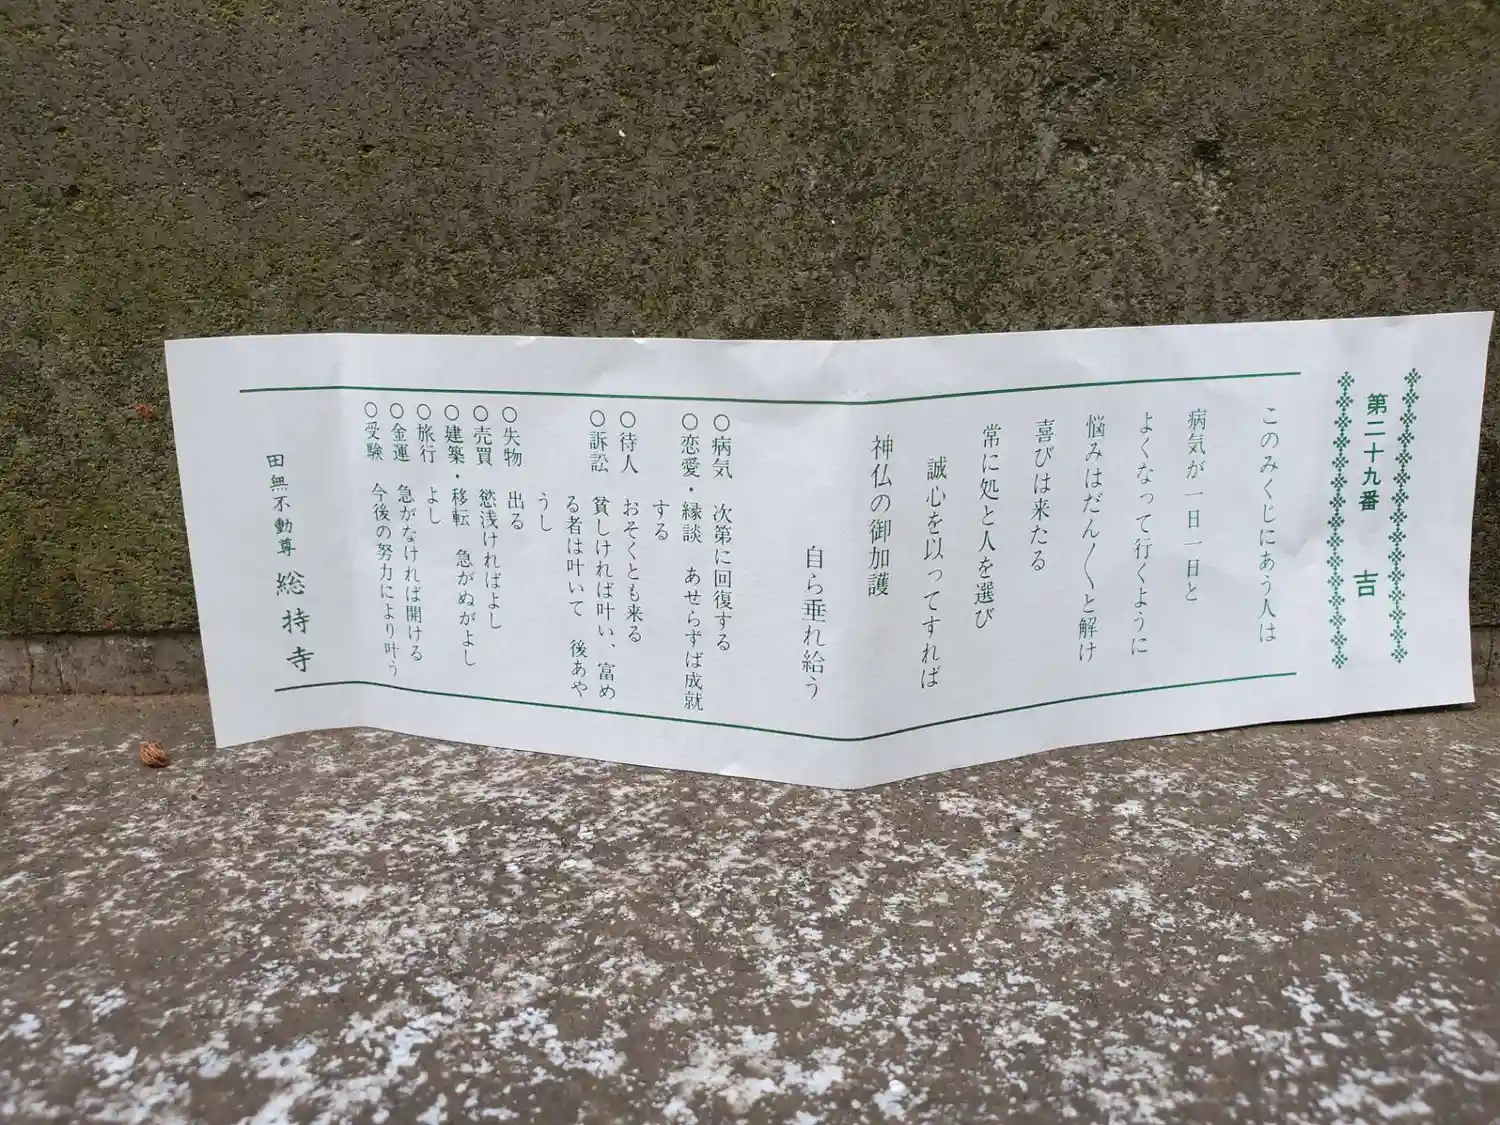 第二十九番 吉
このみくじにあう人は
病気が一日一日と
よくなって行くように
悩みはだん〱と解け
喜びは来たる
常に処と人を選び
誠心を以ってすれば
神仏の御加護
自ら垂れ給う
○病気 次第に回復する
○恋愛・縁談 あせらずば成就
する
○待人 おそくとも来る
○訴訟 貧しければ叶い、富め
る者は叶いて 後あや
うし
○失物 出る
○売買 慾浅ければよし
○建築・移転 急がぬがよし
○旅行 よし
○金運 急がなければ開ける
○受験 今後の努力により叶う
田無不動尊 総持寺